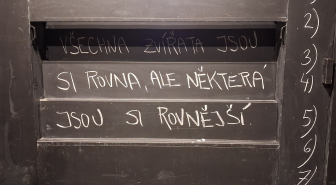 VŠECHNA ZVÍŘATA JSOU
SI ROVNA, ALE NĚKTERÁ
JSOU SI ROVNĚJŠÍ.
2)
3)
4)
5)
6)
7)